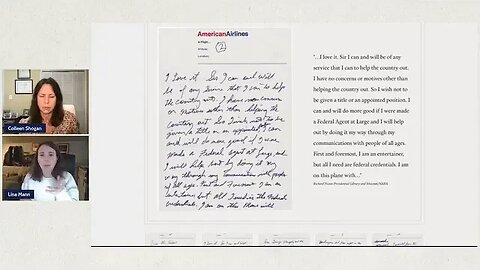 AmericanAirlines
In Flight...
Altitude;
Location;
2
I love it. Sir I can and will
be of any Service that I can to help
the country out. I have no concern
or motives other than helping the
country out. So I wish not to be
given a title or an appointed position, I can
and will do more good if I were
made a Federal Agent at Large, and
I will help out by doing it my
way through my communications with people
of all ages. First and Foremost I am an
entertainer but all I need is the Federal
credentials. I am on this Plane with
"...I love it. Sir I can and will be of any
service that I can to help the country out.
I have no concerns or motives other than
helping the country out. So I wish not to
be given a title or an appointed position. I
can and will do more good if I were made
a Federal Agent at Large and I will help
out by doing it my way through my
communications with people of all ages.
First and foremost, I am an entertainer,
but all I need are federal credentials. I am
on this plane with..."
Richard Nixon Presidential Library and Museum/NARA
Colleen Shogan
Lina Mann